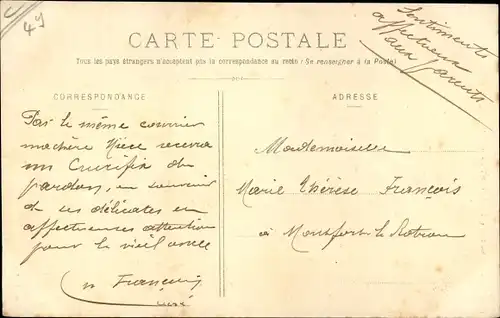 49
Sentiments
affectueux
aux parents
CARTE POSTALE
Tous les pays étrangers n'acceptent pas la correspondance au recto (Se renseigner à la Poste)
CORRESPONDANCE
Par le même courrier
machère Nièce recevra
un Crucifix du
pardon, en souvenir
de ses délicates en
affectueuses attention
pour le vieil oncle
François
curé
ADRESSE
Mademoiselle
Marie Thérèse François
à Montfort le Rotrou